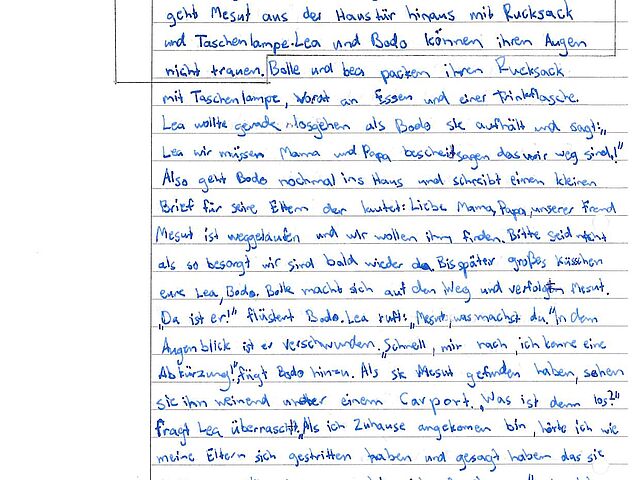 geht Mesut aus der Haustür hinaus mit Rucksack
und Taschenlampe. Lea und Bodo können ihren Augen
nicht trauen. Bolle und Lea packen ihren Rucksack
mit Taschenlampe, Vorat an Essen und einer Trinkflasche.
Lea wollte gerade losgehen als Bodo sie aufhält und sagt: „
Lea wir müssen Mama und Papa bescheidsagen das wir weg sind!"
Also geht Bodo nochmal ins Haus und schreibt einen kleinen
Brief für seine Eltern der lautet: Liebe Mama, Papa, unserer Freund
Mesut ist weggelaufen und wir wollen ihm finden. Bitte seid nicht
als so besorgt wir sind bald wieder da. Bis später großes Küsschen
eure Lea, Bodo. Bolle macht sich auf den Weg und verfolgt Mesut.
„Da ist er!" flüstert Bodo. Lea ruft: „Mesut, was machst du." In dem
Augenblick ist er verschwunden. „Schnell, mir nach, ich kenne eine
Abkürzung!", fügt Bodo hinzu. Als sie Mesut gefunden haben, sehen
sie ihn weinend unter einem Carport. „Was ist denn los?"
fragt Lea überrascht. „Als ich Zuhause angekomen bin, hörte ich wie
meine Eltern sich gestritten haben und gesagt haben das sie